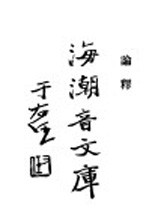 論釋
海潮音文庫
于右任